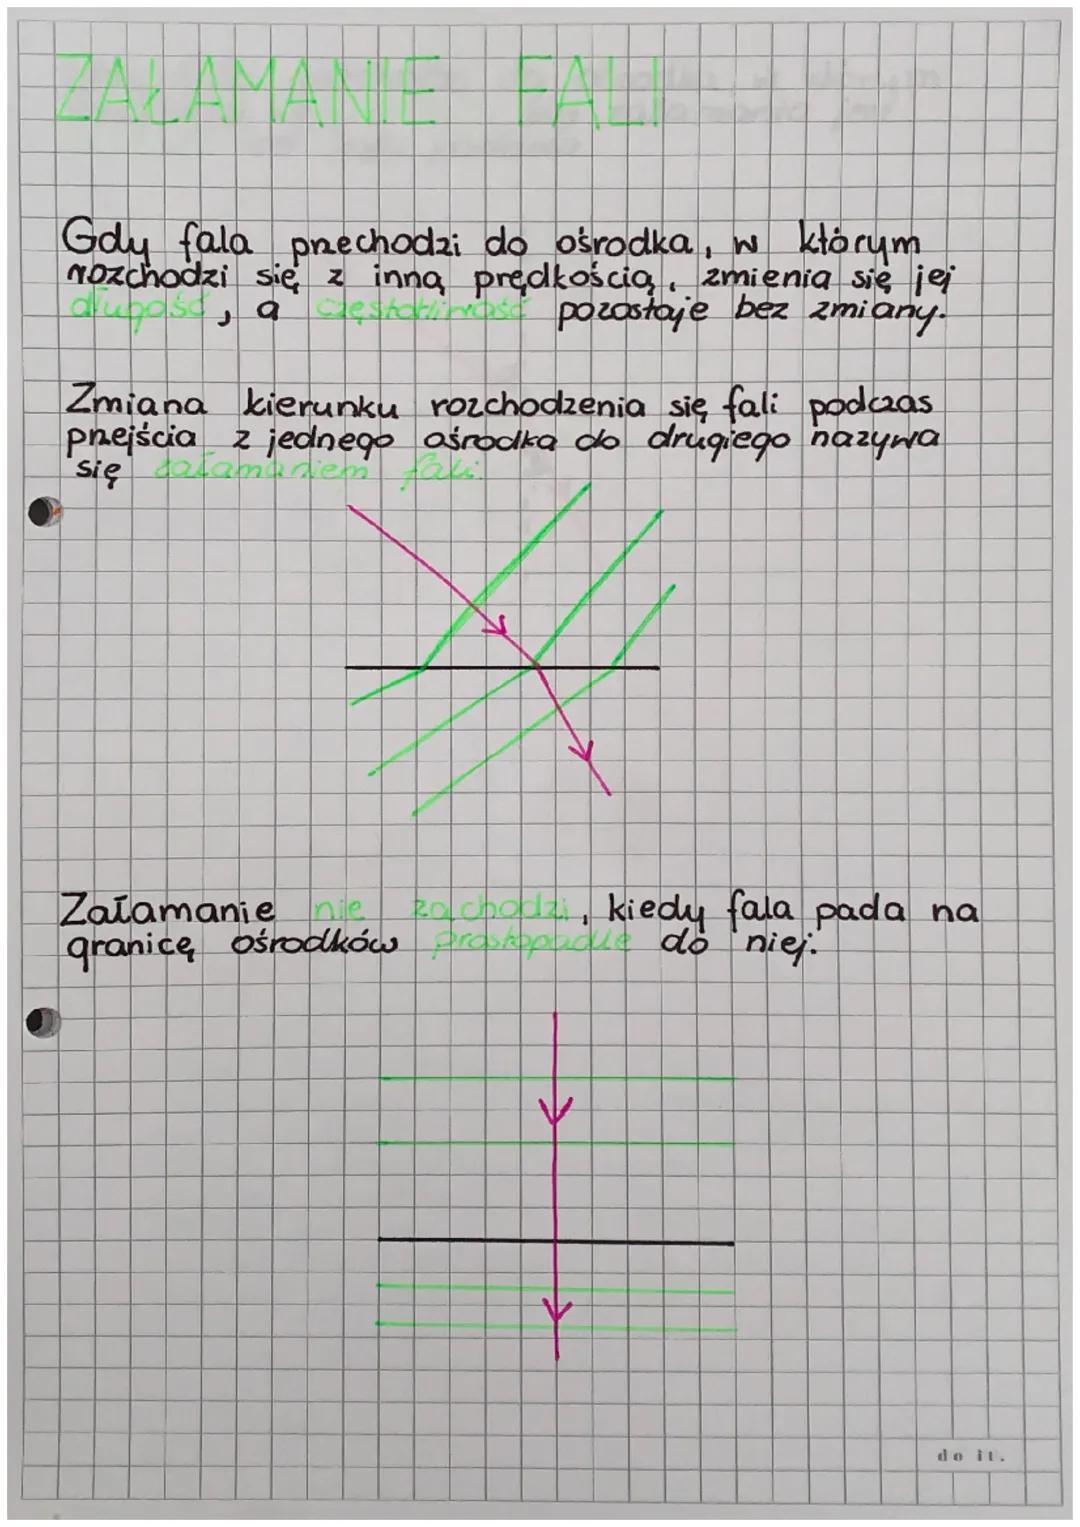 ZAŁAMANIE FALI
Gdy fala przechodzi do ośrodka, w którym
rozchodzi się z inną prędkością, zmienia się jej
długość, a częstotliwość pozostaje bez zmiany.
Zmiana kierunku rozchodzenia się fali podczas
przejścia z jednego ośrodka do drugiego nazywa
się załamaniem fali.
Załamanie nie zachodzi, kiedy fala pada na
granicę ośrodków prostopadle do niej.
do it.